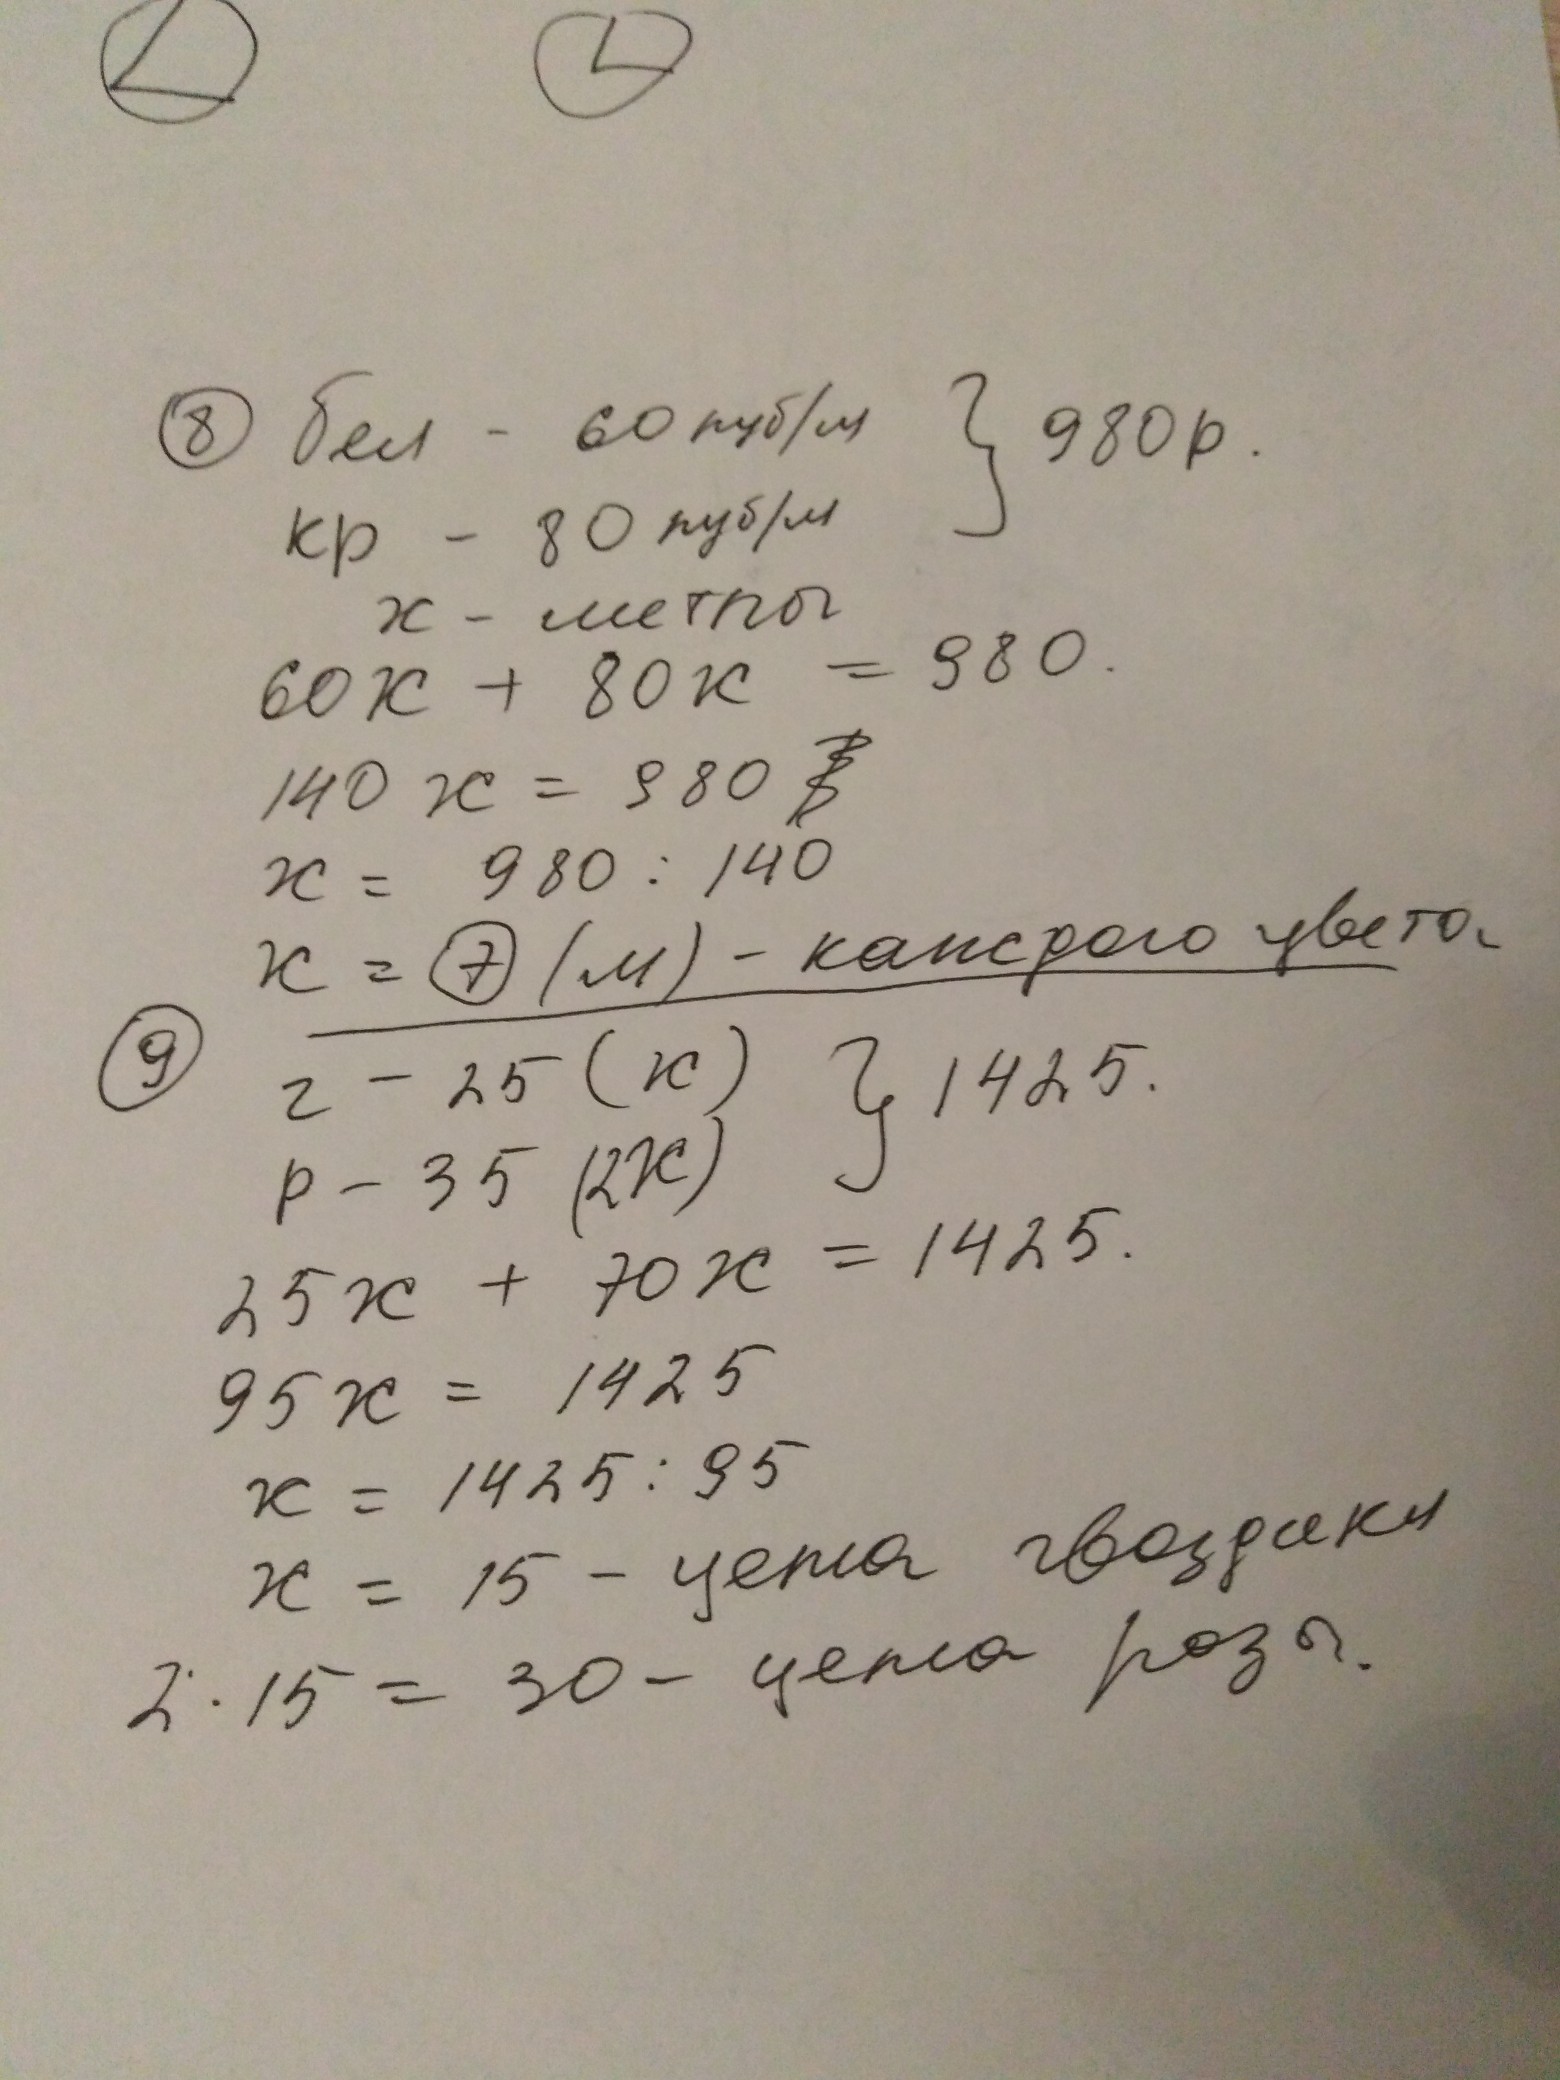 ⑧ бел - 60 руб/м } 980р.
кр - 80 руб/м
х - метры
60х + 80х = 980.
140х = 980
х = 980 : 140
х = 7 (м) - каждого цвета
⑨ г - 25 (х) } 1425.
р - 35 (2х)
25х + 70х = 1425.
95х = 1425
х = 1425 : 95
х = 15 - цена гвоздики
2 · 15 = 30 - цена розы.